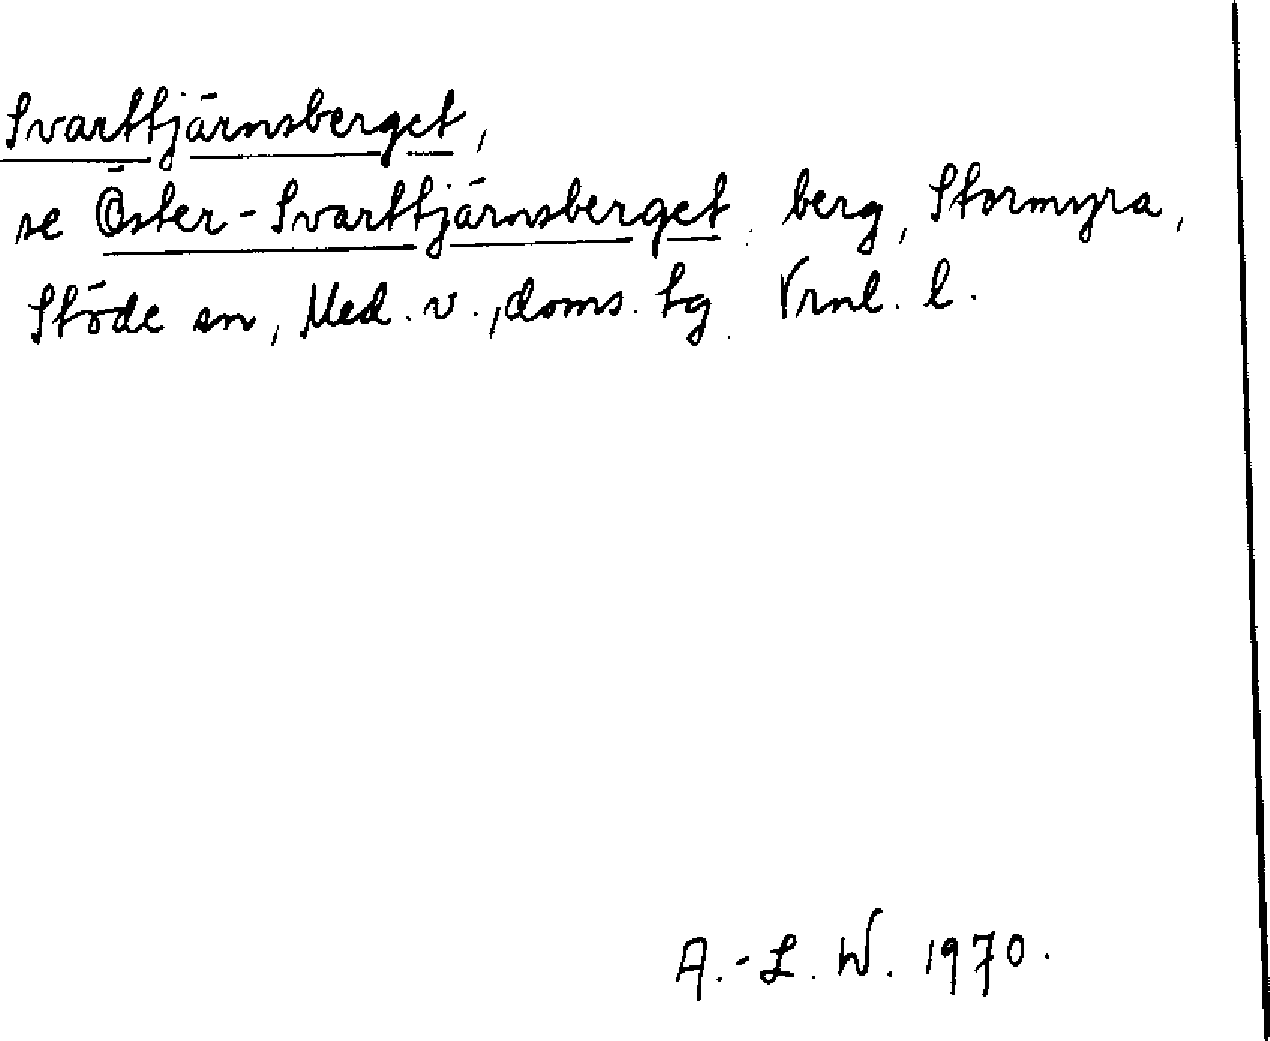 Svarttjärnsberget,
se Öster-Svarttjärnsberget. berg, Stormyra,
Stöde sn, Med. v., doms. tg. Vrnl. l.
A.-L. W. 1970.